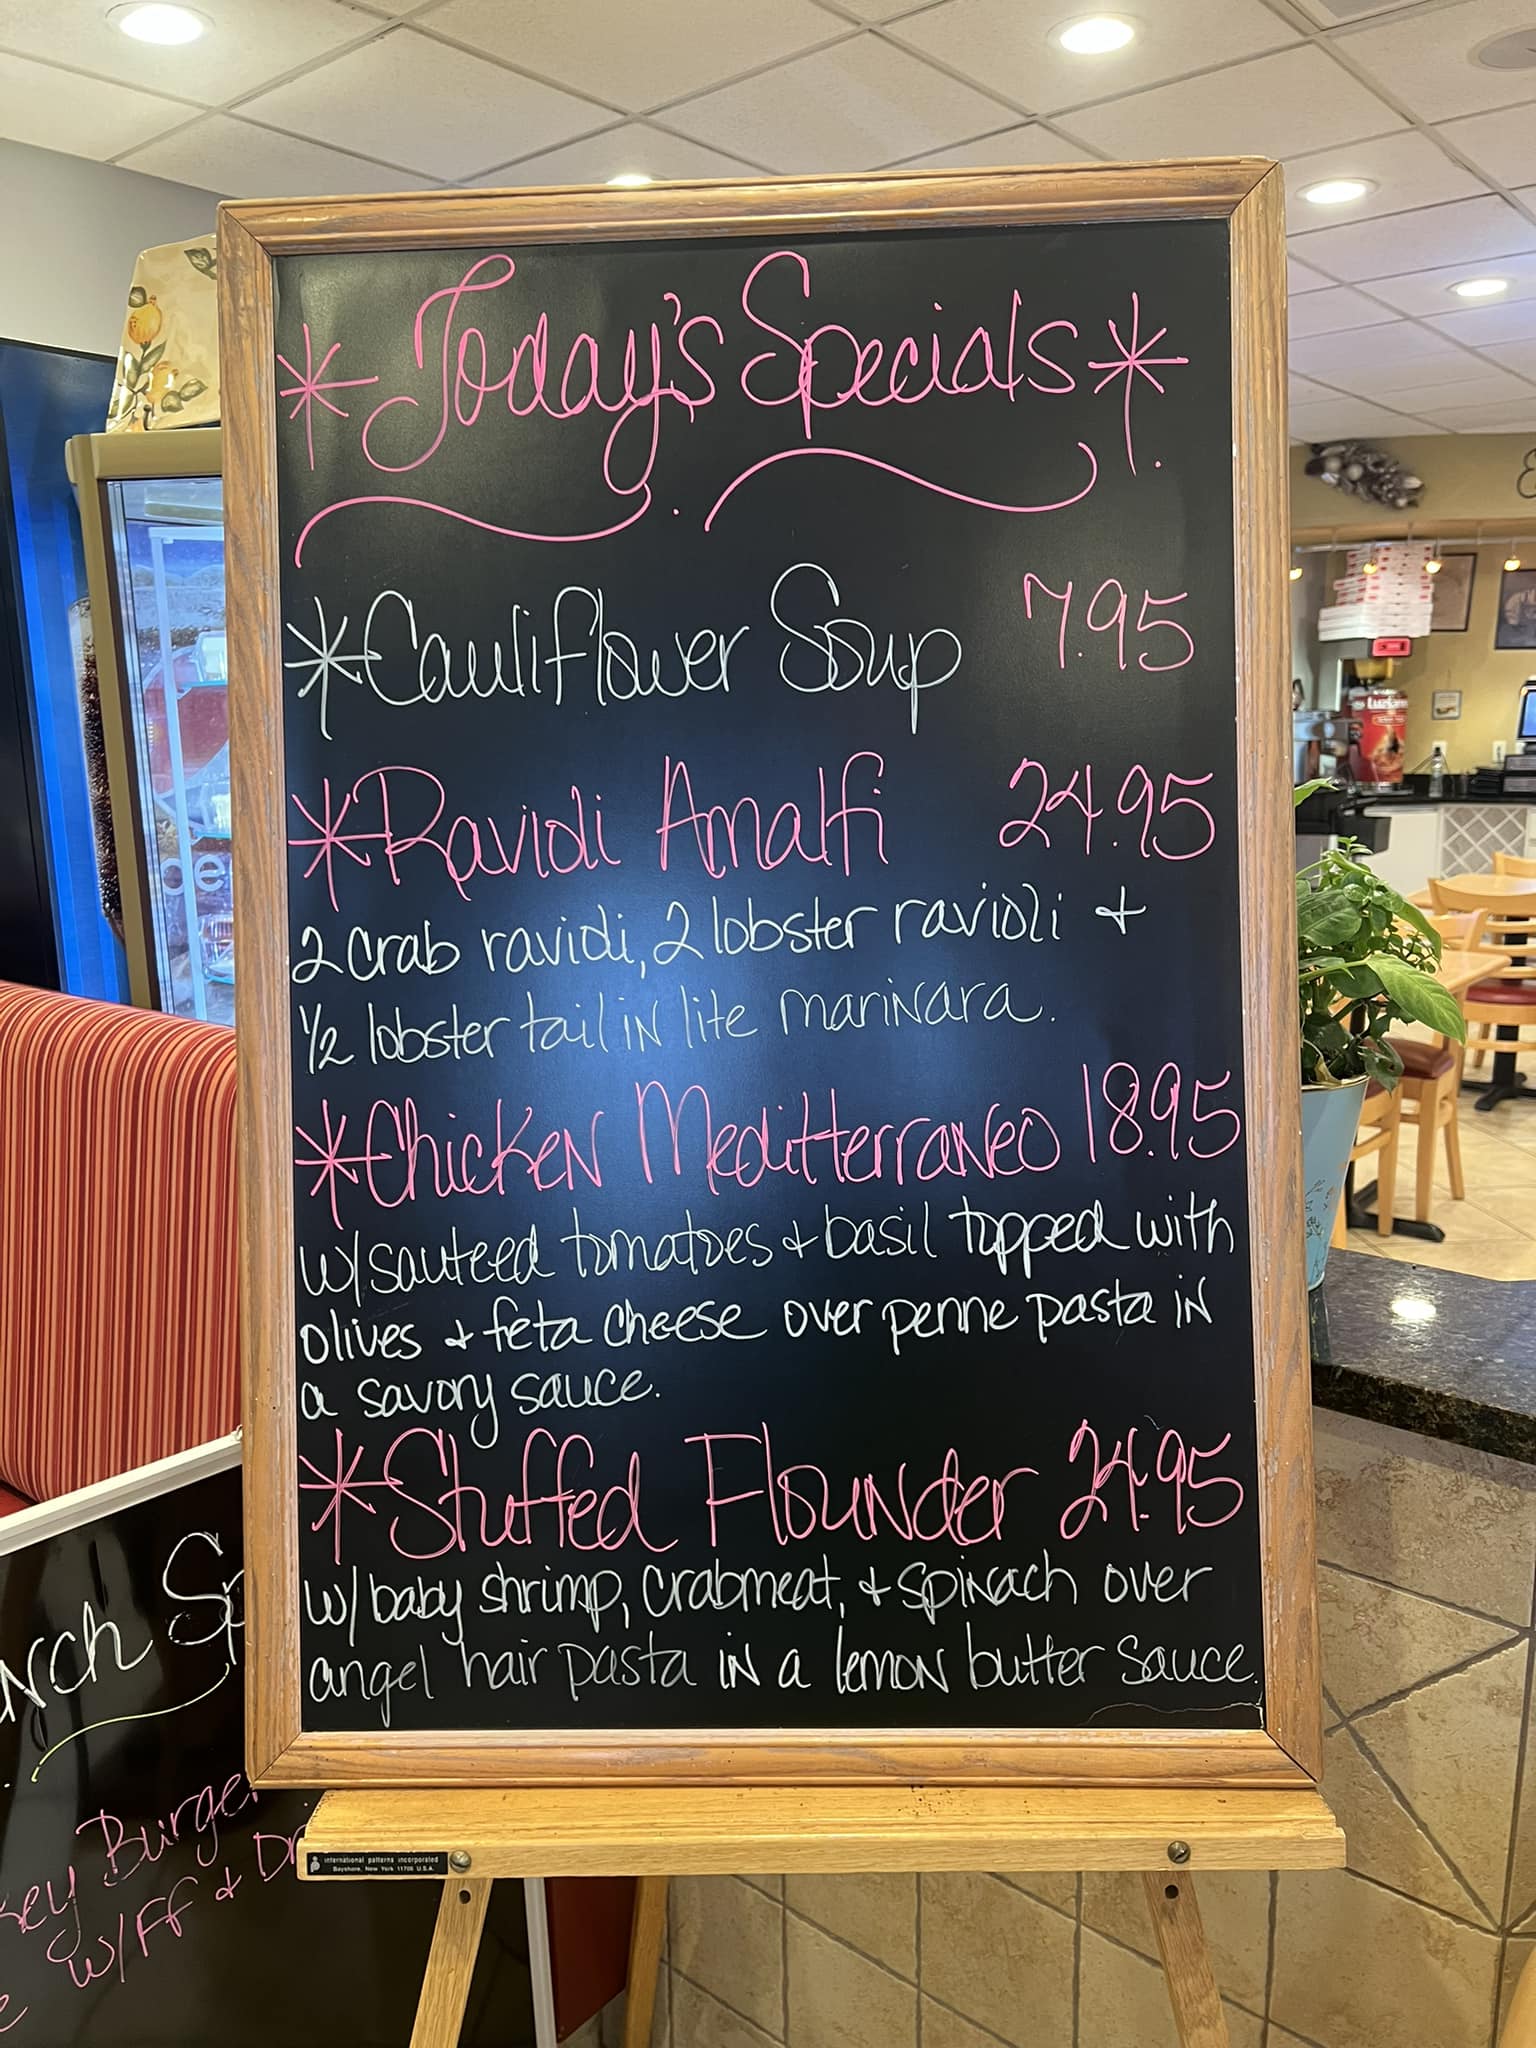 *Today's Specials*
*Cauliflower Soup 7.95
*Ravioli Amalfi 24.95
2 crab ravioli, 2 lobster ravioli +
1/2 lobster tail in lite marinara.
*Chicken Meditterraneo 18.95
w/sauteed tomatoes + basil topped with
olives + feta cheese over penne pasta in
a savory sauce.
*Stuffed Flounder 24.95
w/baby shrimp, crabmeat, + spinach over
angel hair pasta in a lemon butter sauce.
international patterns incorporated
Bayshore, New York 11706 U.S.A.
Burger
w/FF + Dr